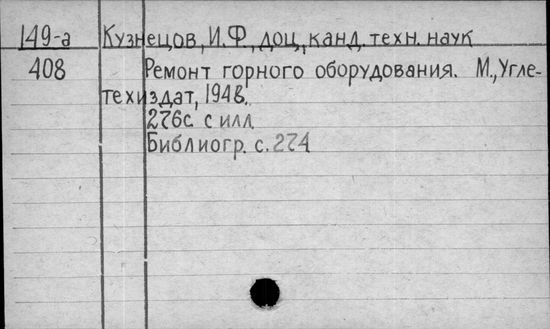 149-а Кузнецов, И.Ф., доц., канд. техн. наук
408 Ремонт горного оборудования. М., Угле-
техиздат, 1948.
276с. с илл
Библиогр. с. 274